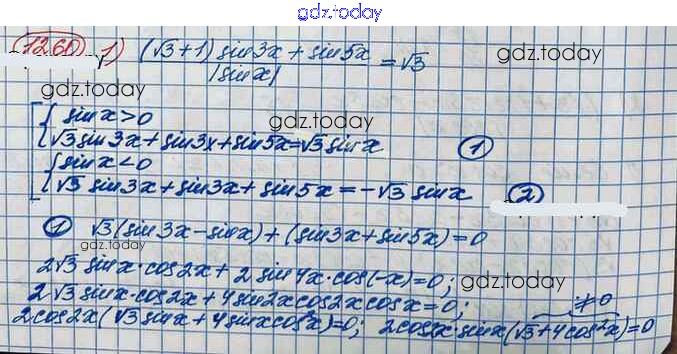 gdz.today
1260 1) (√3+1) sin3x + sin5x / |sinx| = √3
gdz.today
gdz.today
sinx>0
gdz.today
√3sin3x+sin3x+sin5x=√3sinx ①
sinx<0
√3 sin3x+sin3x+sin5x=-√3 sinx ②
① √3(sin3x-sinx)+(sin3x+sin5x)=0
gdz.today
2√3 sinx·cos2x+2sin4x·cos(-x)=0;
gdz.today
2√3 sinx·cos2x+4sin2xcos2xcosx=0; ≠0
2cos2x(√3sinx+4sinxcos²x)=0; 2cos2x·sinx(√3+4cos²x)=0